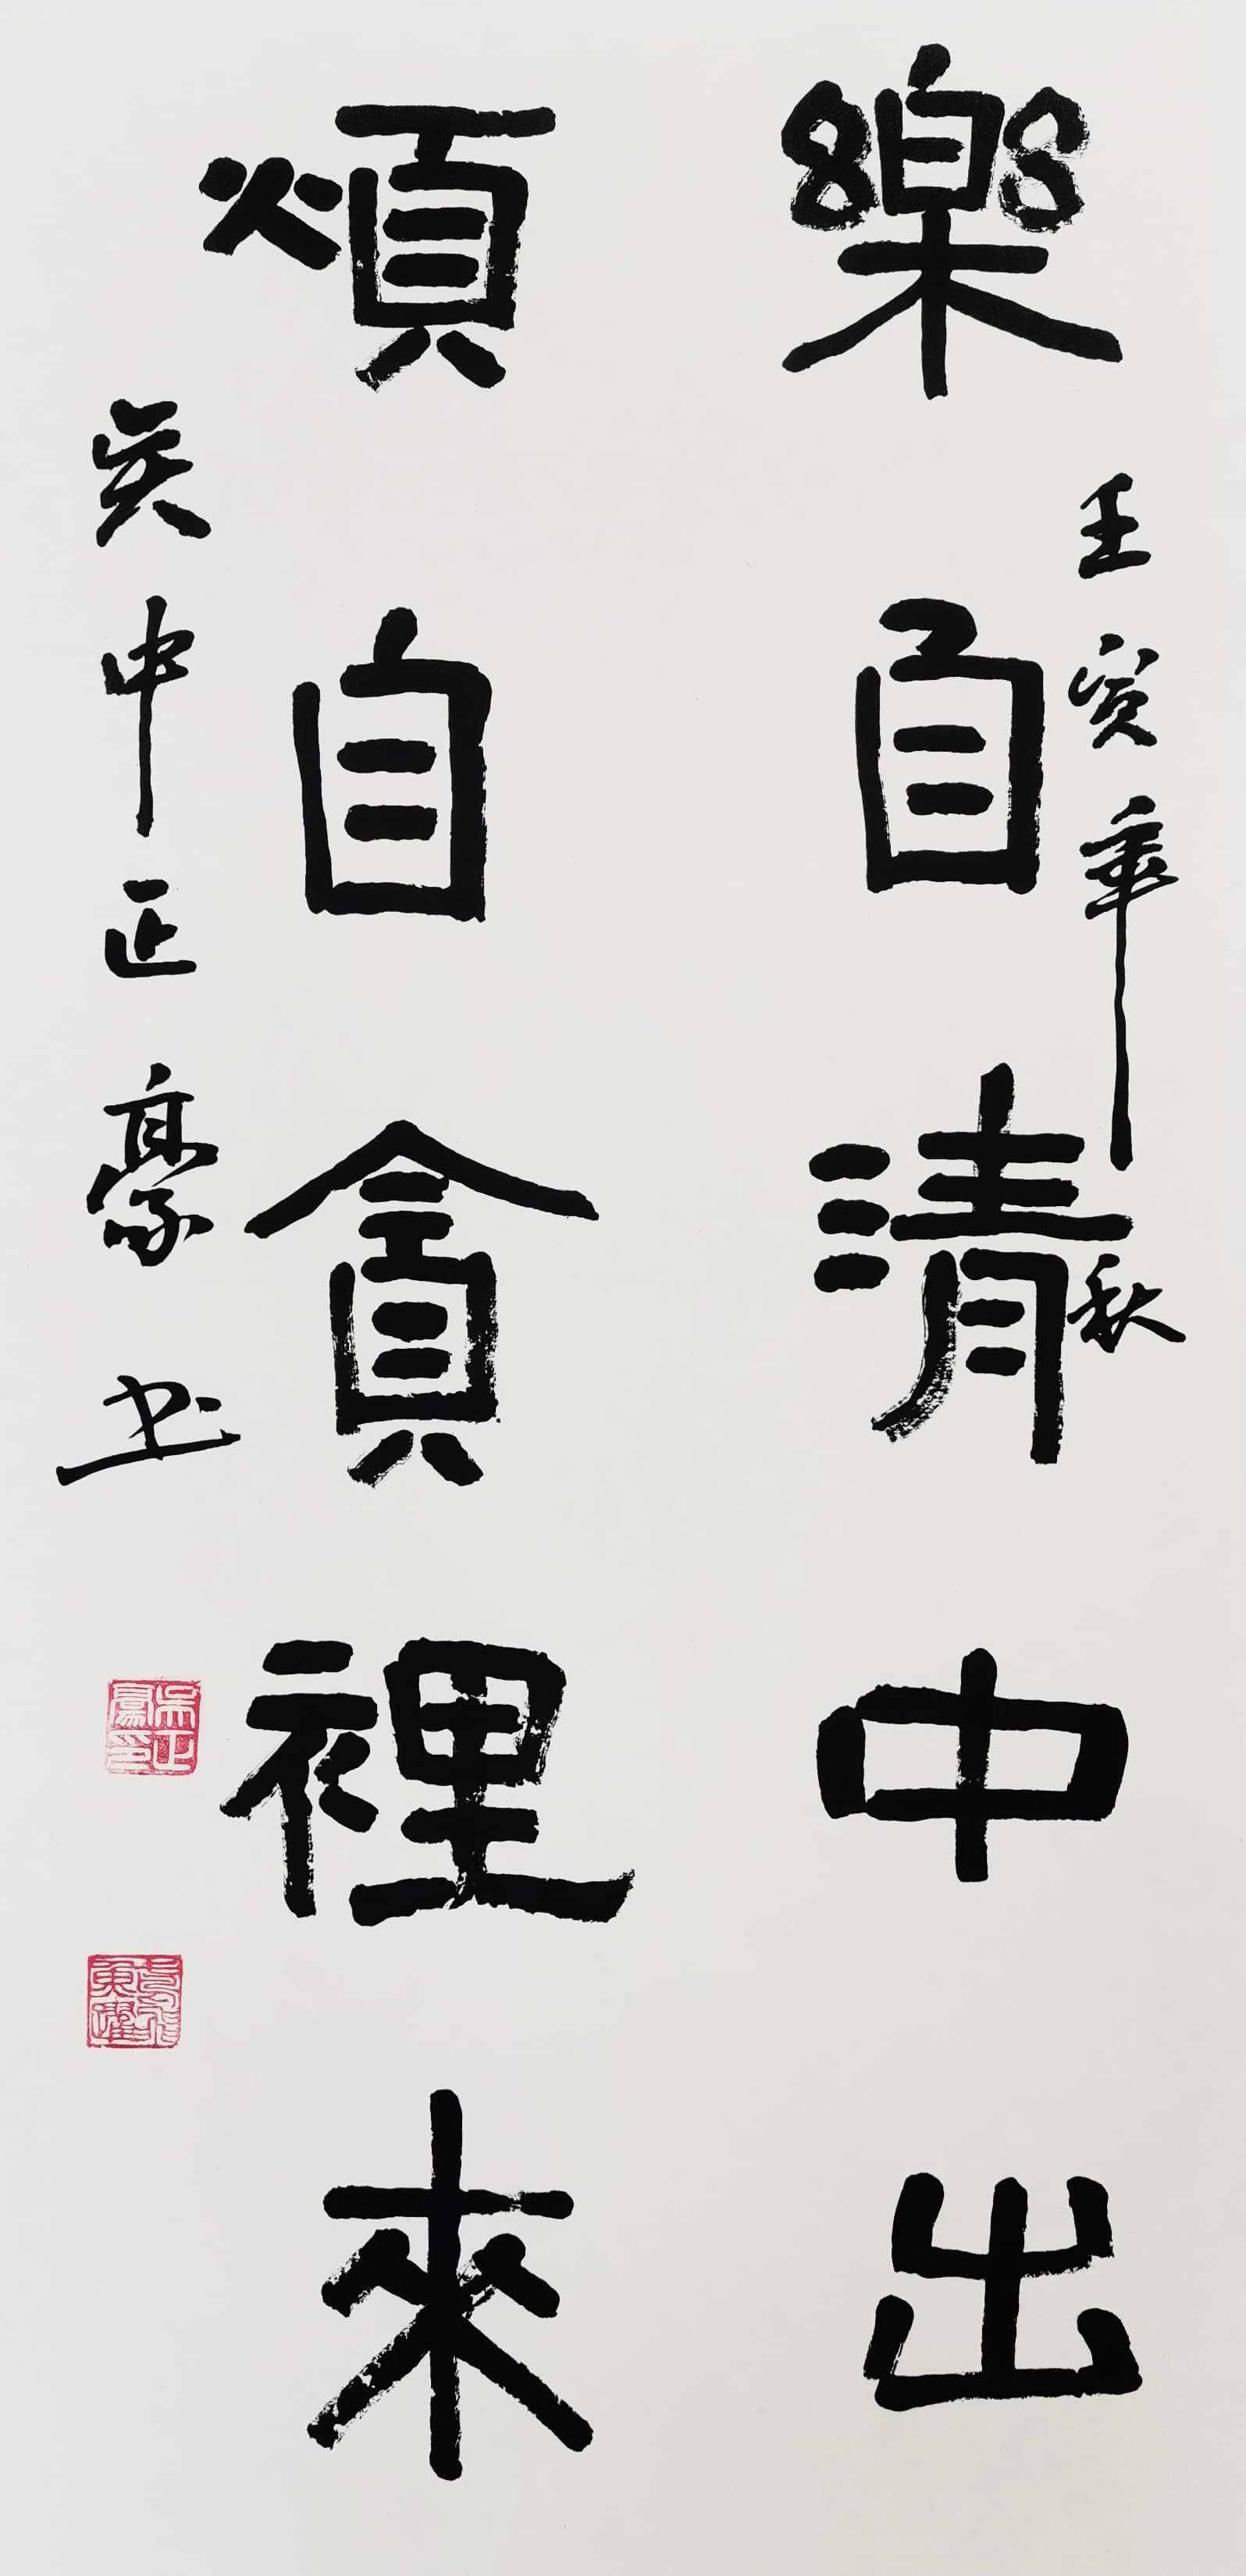 樂自清中出
壬寅年秋
煩自貪裡來
吳中正豪书